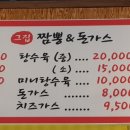 그집 짬뽕&돈가스
탕수육 (중) .... 20,000
(소) .... 15,000
미니탕수육 .... 10,000
돈가스 ........ 8,000
치즈가스 ...... 9,50